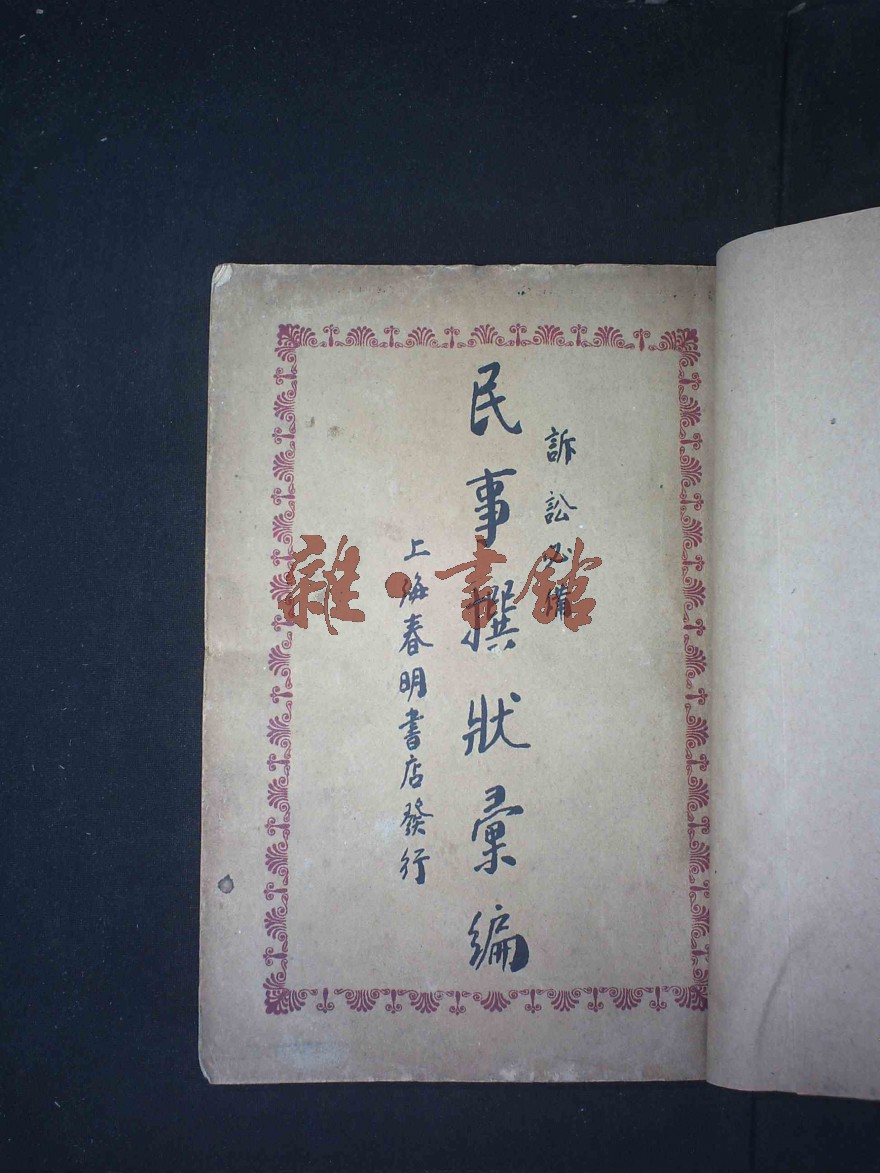 訴訟必備
民事撰狀彙編
上海春明書店發行
雜·書館